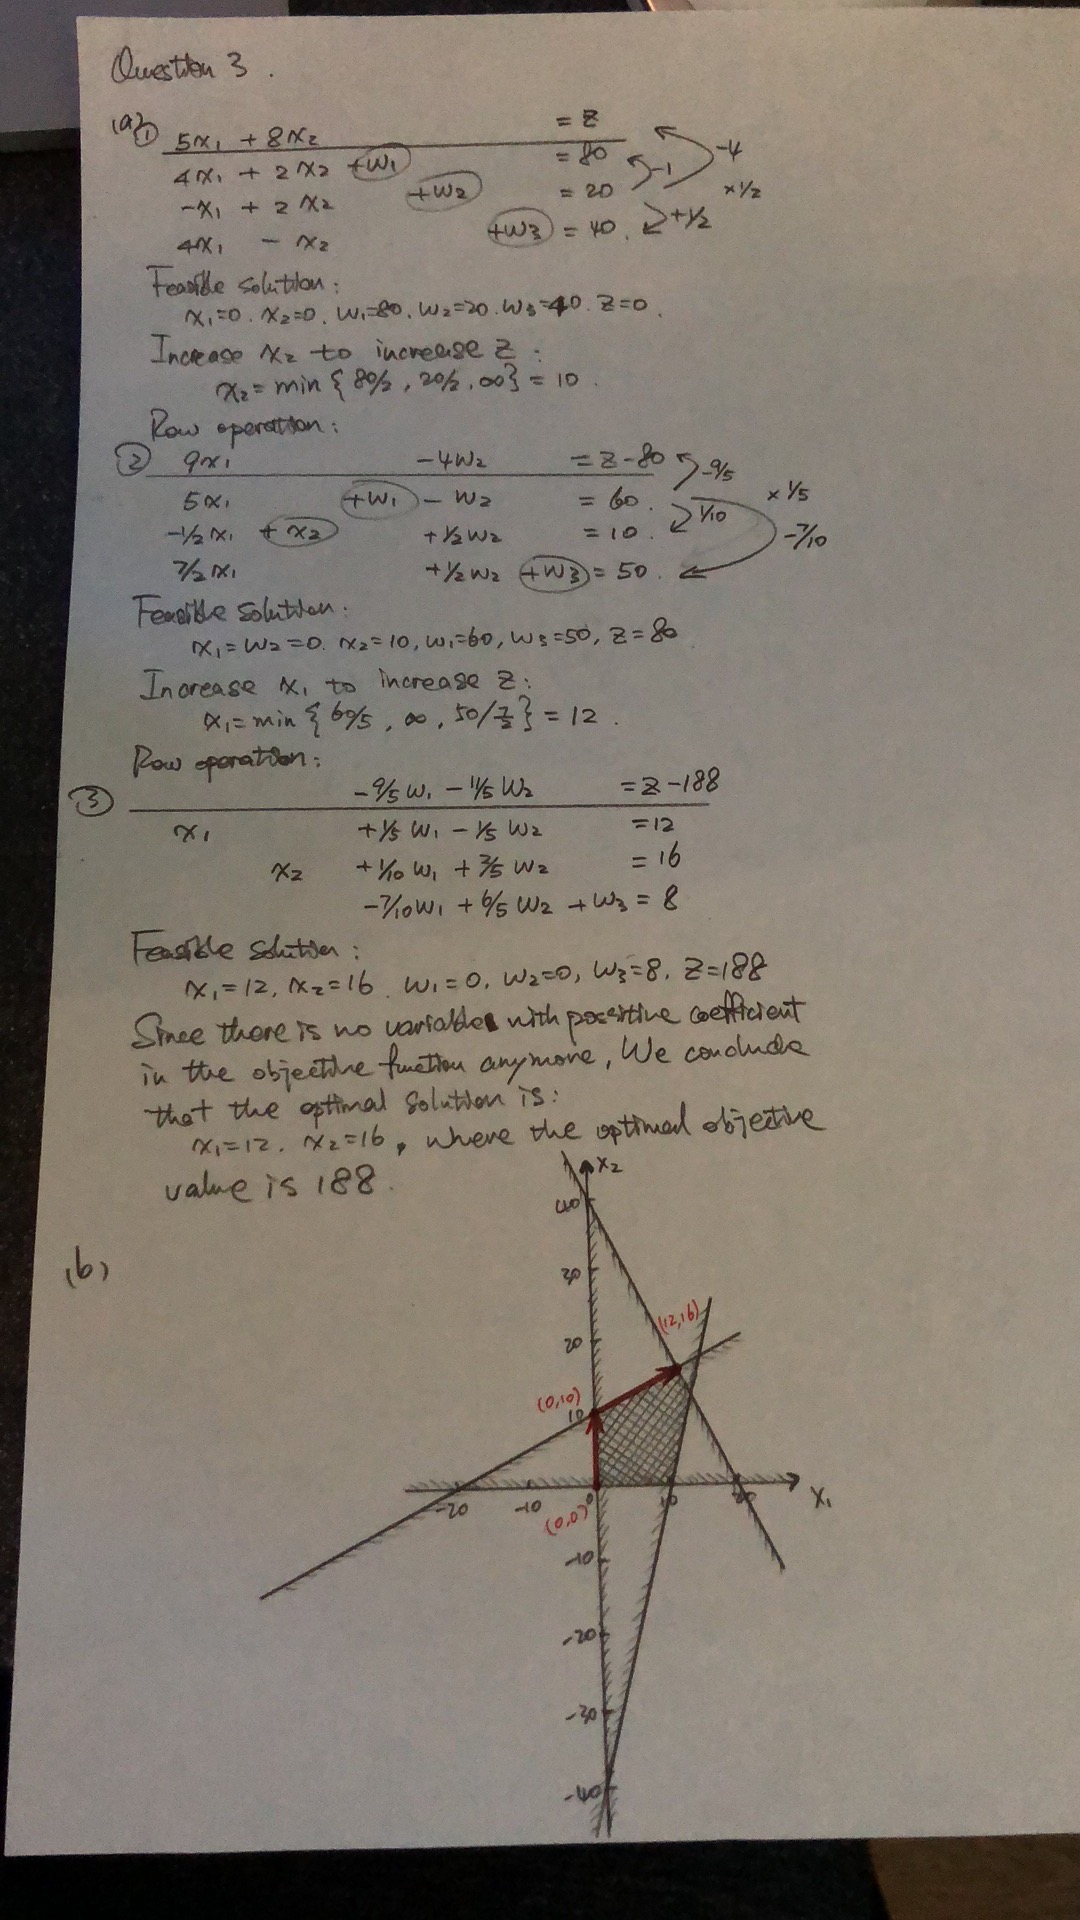 Question 3.
(a) ① 5x₁ + 8x₂ = Z
4x₁ + 2x₂ +w₁ = 80
-x₁ + 2x₂ +w₂ = 20
4x₁ - x₂ +w₃ = 40.
-4
-1
x½
+½
Feasible solution:
x₁=0. x₂=0. w₁=80. w₂=20. w₃=40. Z=0.
Increase x₂ to increase Z:
x₂ = min {80/2, 20/2, ∞} = 10.
Row operation:
② 9x₁ -4w₂ = Z-80
5x₁ +w₁ - w₂ = 60.
-½x₁ + x₂ +½w₂ = 10.
7/2x₁ +½w₂ +w₃ = 50.
-9/5
x 1/5
1/10
-7/10
Feasible solution:
x₁=w₂=0. x₂=10, w₁=60, w₃=50, Z=80
Increase x₁ to increase Z:
x₁ = min {60/5, ∞, 50/7/2} = 12.
Row operation:
③ -9/5w₁ - 11/5w₂ = Z-188
x₁ +1/5w₁ - 1/5w₂ = 12
x₂ +1/10w₁ + 2/5w₂ = 16
-7/10w₁ + 6/5w₂ + w₃ = 8
Feasible solution:
x₁=12, x₂=16. w₁=0, w₂=0, w₃=8, Z=188
Since there is no variable with possitive coefficient
in the objective function anymore, We conclude
that the optimal solution is:
x₁=12. x₂=16, where the optimal objective
value is 188.
(b)
x₂
40
30
20
(12,16)
(0,10)
10
-20 -10 0 10 20 x₁
(0,0)
-10
-20
-30
-40